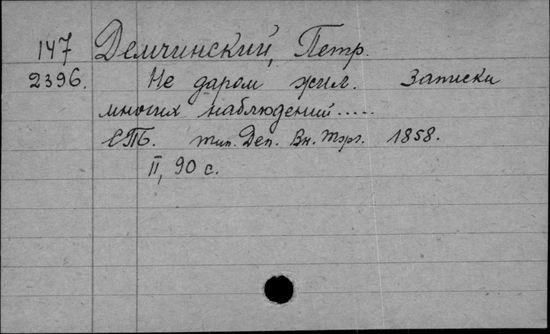 147 Демчинский, Петр.
2396. Не даром жил. Записки
многих наблюдений.....
СПБ. тип. Деп. Вн. Торг. 1858.
II, 90 с.